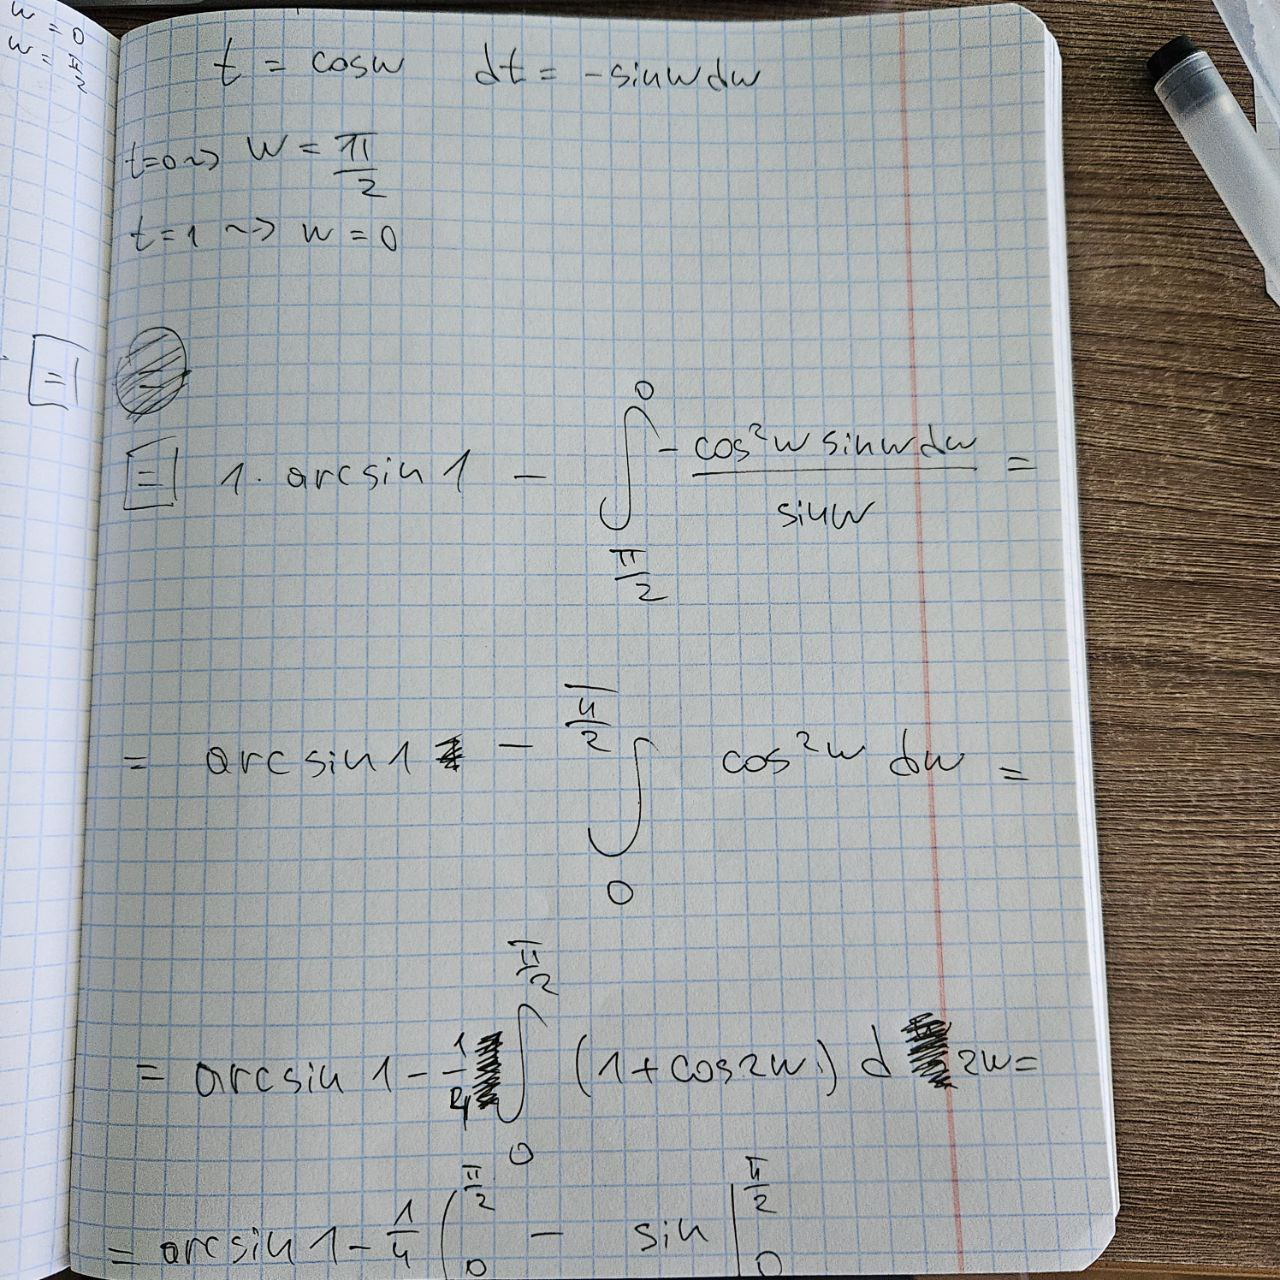 w = 0
w = π/2
t = cosw dt = -sinwdw
t=0 ~> w = π/2
t=1 ~> w = 0
=
= 1. arcsin 1 - ∫_{π/2}^{0} - cos²w sinwdw / sinw =
= arcsin 1 - ∫_{0}^{π/2} cos²w dw =
= arcsin 1 - 1/4 ∫_{0}^{π/2} (1+cos2w) d 2w =
= arcsin 1 - 1/4 ( |_{0}^{π/2} - sin |_{0}^{π/2}